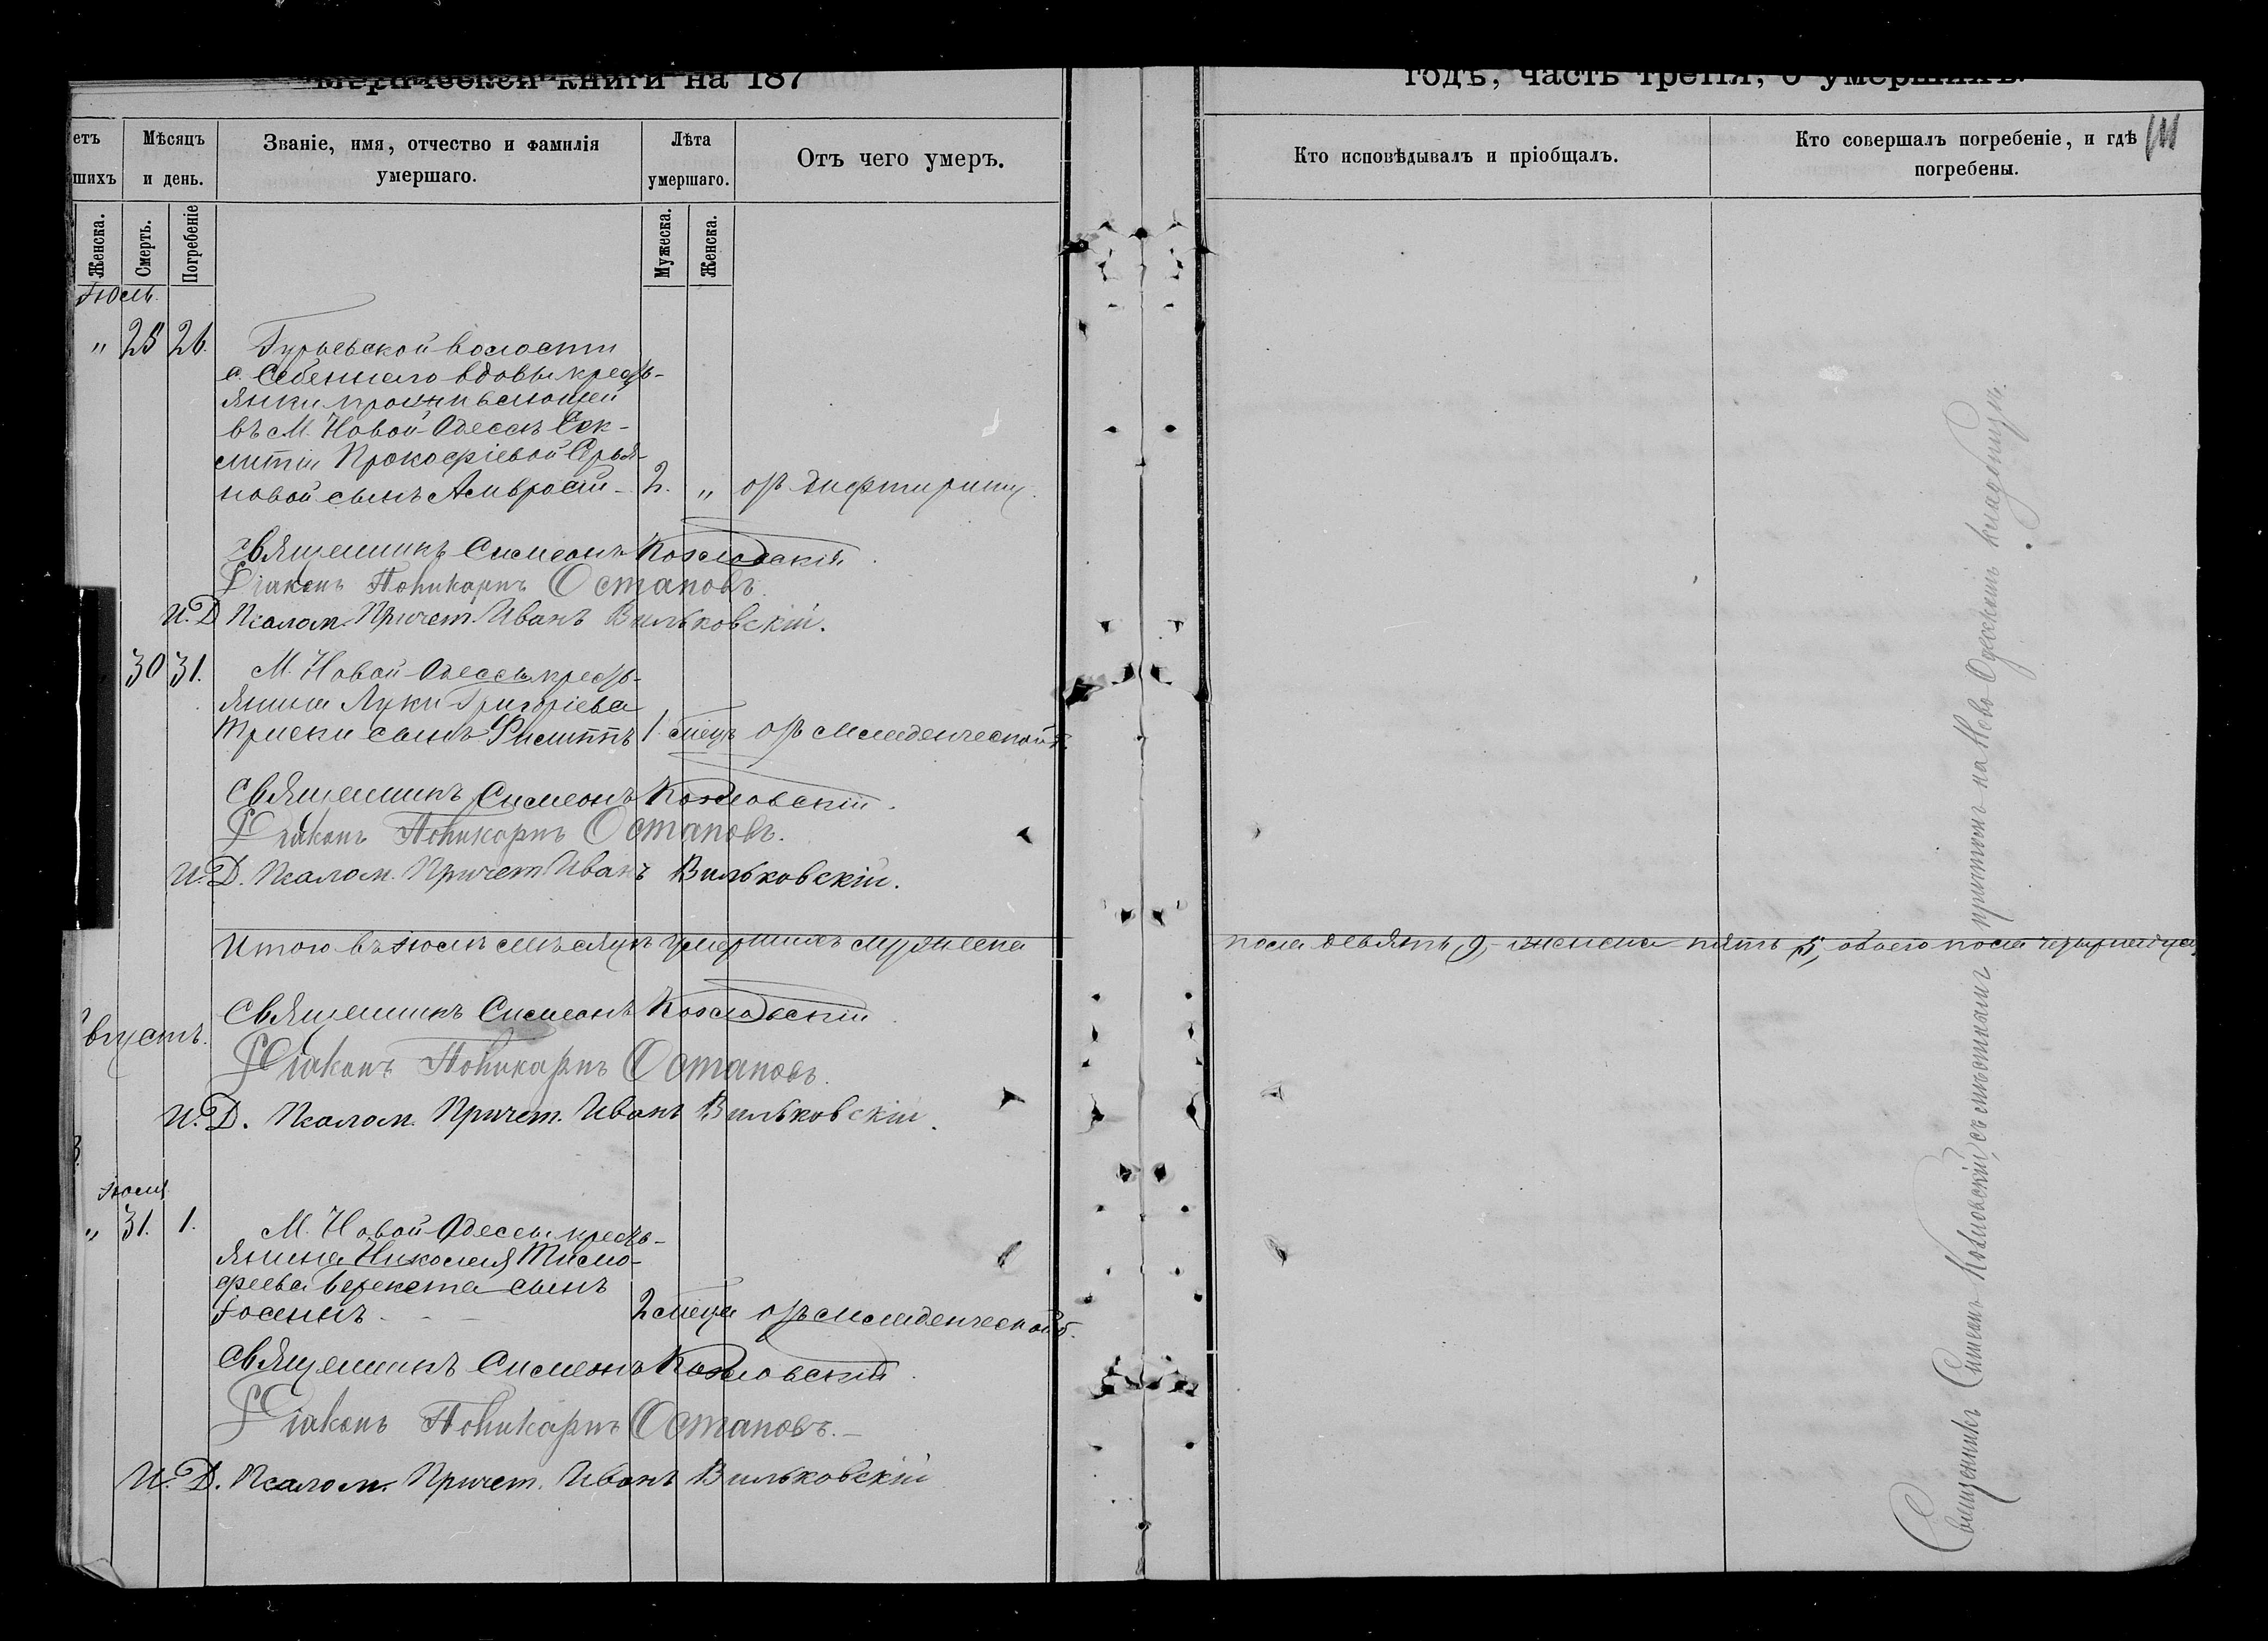 Метрической книги на 187
годъ, часть третія, о умершихъ.
етъ
шихъ
Мѣсяцъ
и день.
Званіе, имя, отчество и фамилія
умершаго.
Лѣта
умершаго.
Отъ чего умеръ.
Кто исповѣдывалъ и пріобщалъ.
Кто совершалъ погребеніе, и гдѣ
погребены.
Женска.
Смерть.
Погребеніе
Мужеска.
Женска.
Іюль.
" 25 26. Гурьевской волости
с. Себеннаго вдовы кресть-
янки проживающей
въ М. Новой Одессѣ
Прокофіевой
новой сынъ Амвросій - 2. " отъ дифтириту.
Священникъ Симеонъ Козловскій.
Діаконъ Поликарпъ Остаповъ.
И. Д. Псалом. Причет. Иванъ Вильковскій.
30 31. М. Новой Одессы кресть-
янина Луки Григоріева
сынъ Филиппъ 1 мѣсц. отъ младенческой б.
Священникъ Симеонъ Козловскій.
Діаконъ Поликарпъ Остаповъ.
И. Д. Псалом. Причет. Иванъ Вильковскій.
Итого въ Іюлѣ мѣсяцѣ умершихъ мужеска
пола девять, 9, женска пять 5, обоего пола четырнадца
Священникъ Симеонъ Козловскій
вгустъ.
Діаконъ Поликарпъ Остаповъ.
И. Д. Псалом. Причет. Иванъ Вильковскій.
Іюля
" 31. 1. М. Новой Одессы кресть-
янина Николая Тимо-
феева сынъ
Іосифъ - - 2 мѣсца отъ младенческой б.
Священникъ Симеонъ Козловскій.
Діаконъ Поликарпъ Остаповъ.-
И. Д. Псалом. Причет. Иванъ Вильковскій
Священникъ Симеонъ Козловскій, съ мѣстнымъ причтомъ на Ново Одесскомъ кладбищѣ.